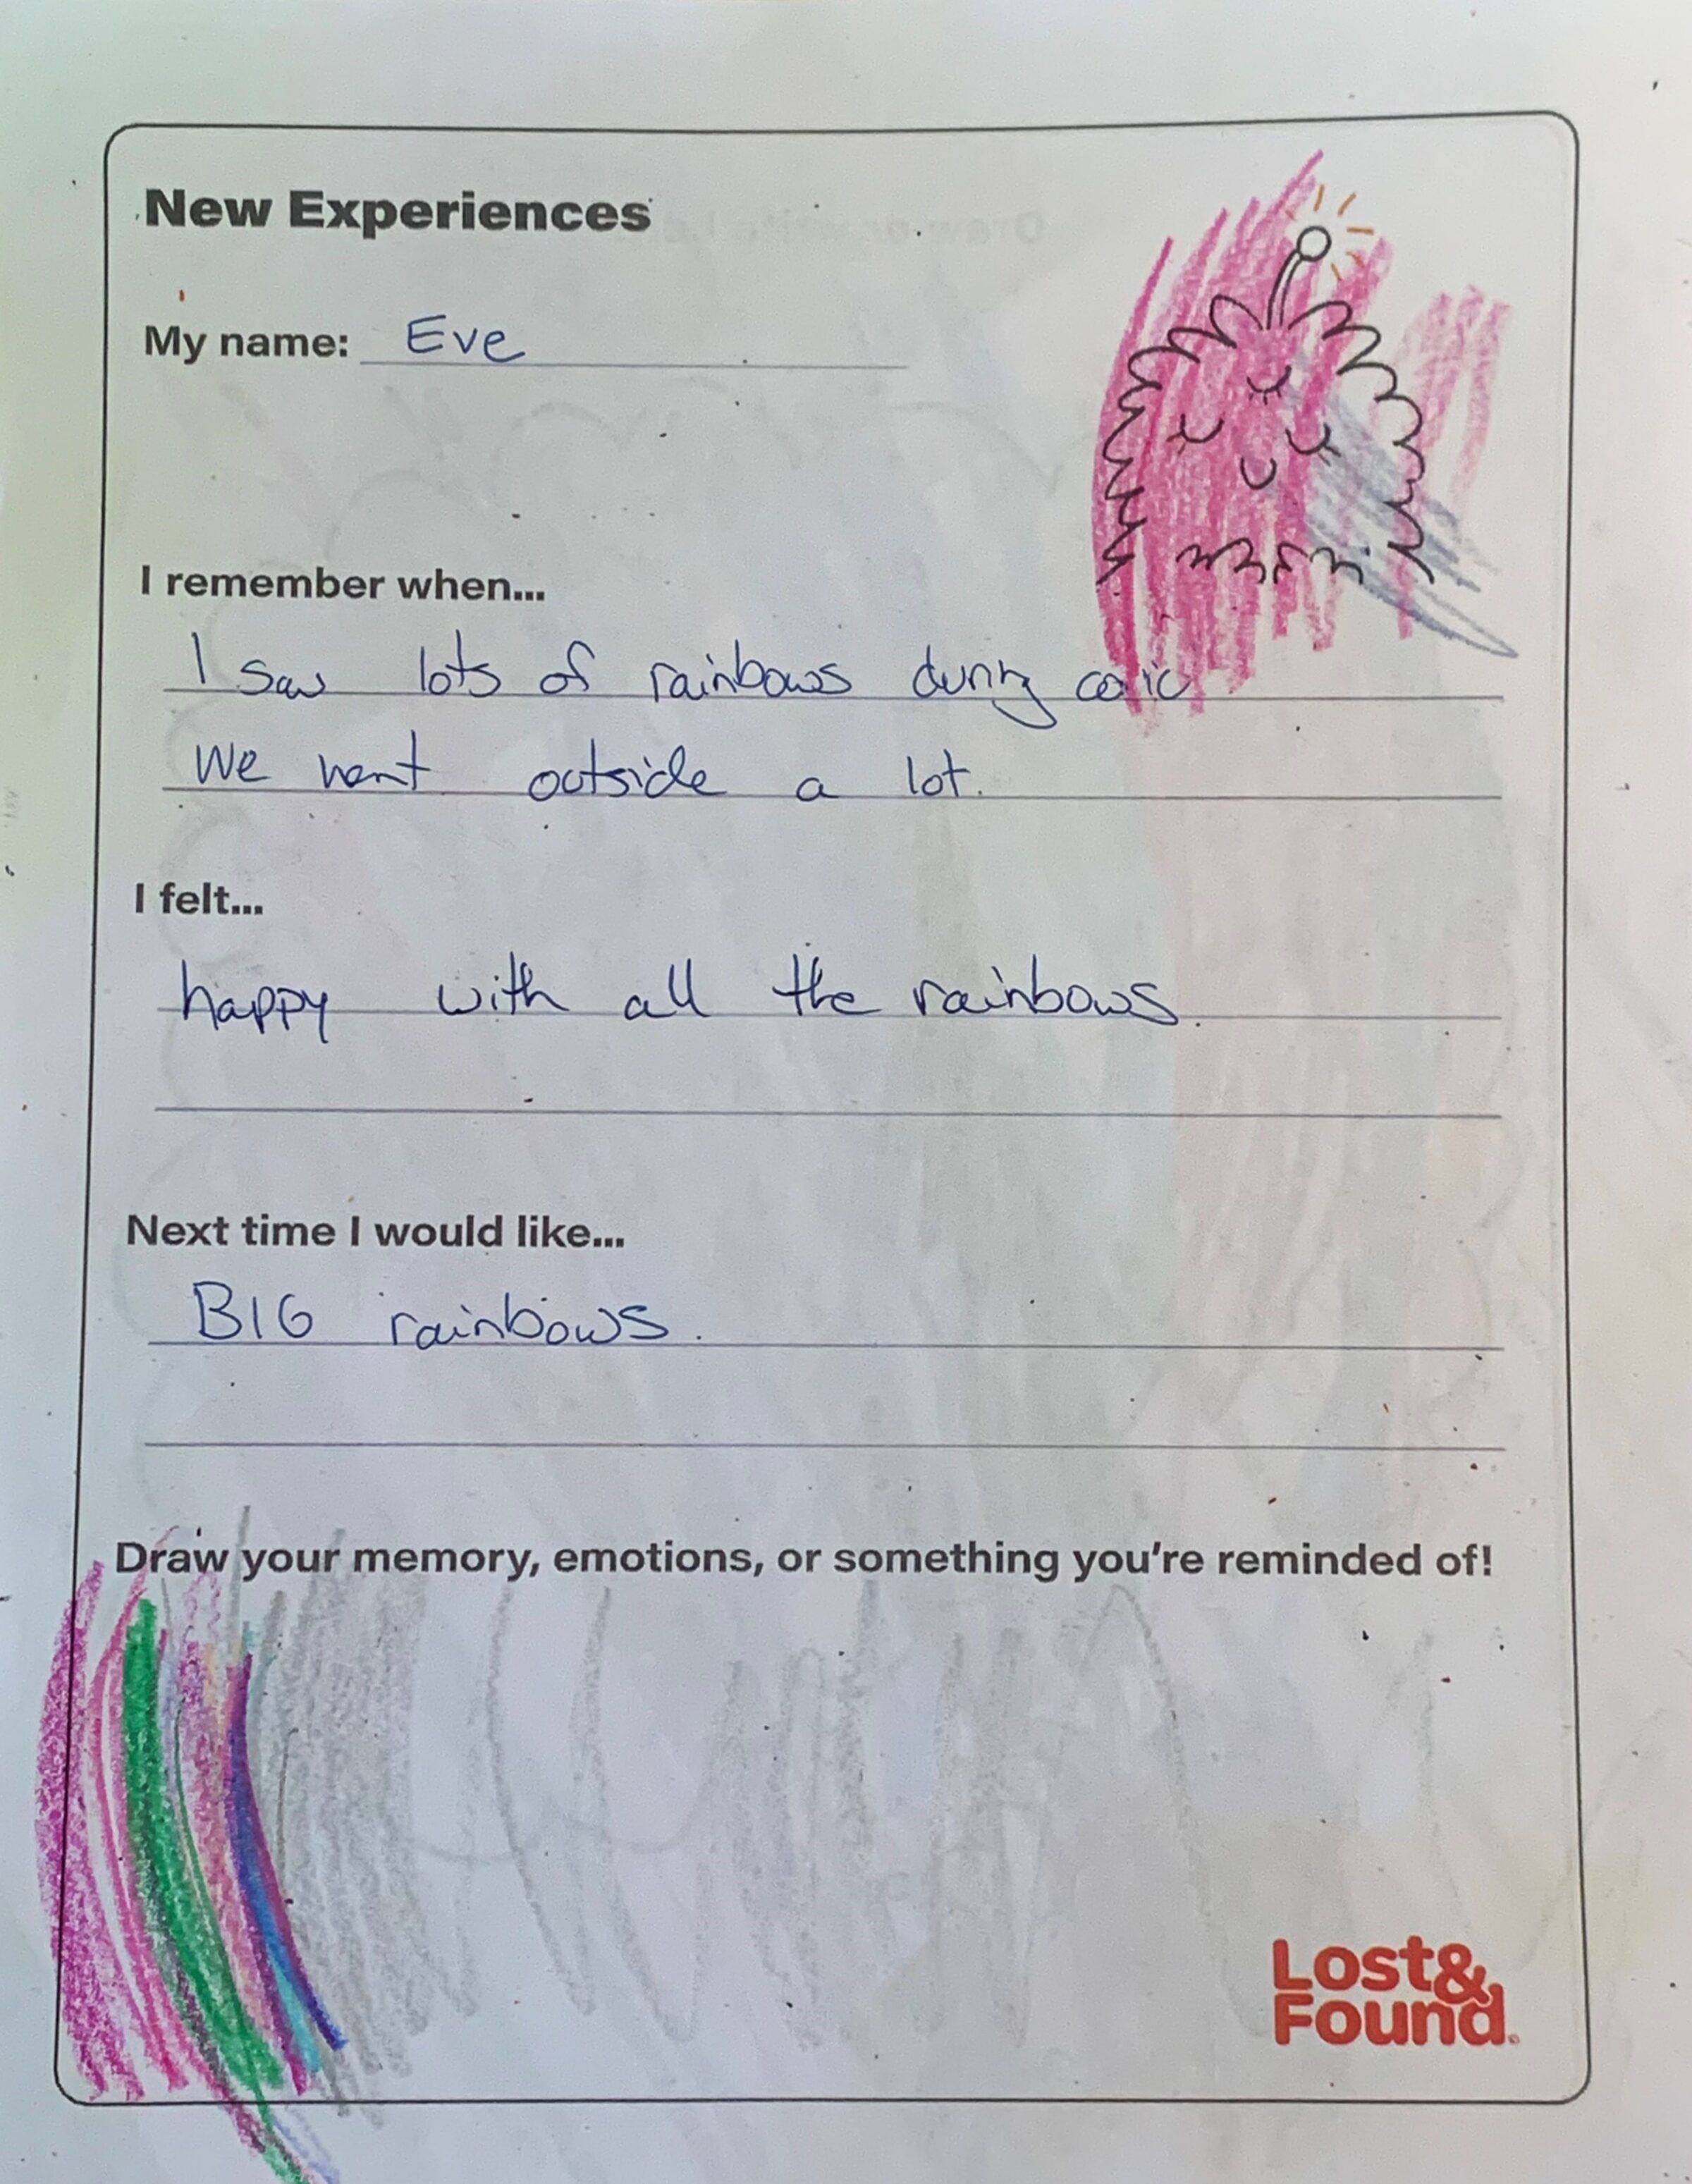 New Experiences
My name: Eve
I remember when...
I saw lots of rainbows during
We went outside a lot.
I felt...
happy with all the rainbows.
Next time I would like...
BIG rainbows.
Draw your memory, emotions, or something you're reminded of!
Lost&
Found.